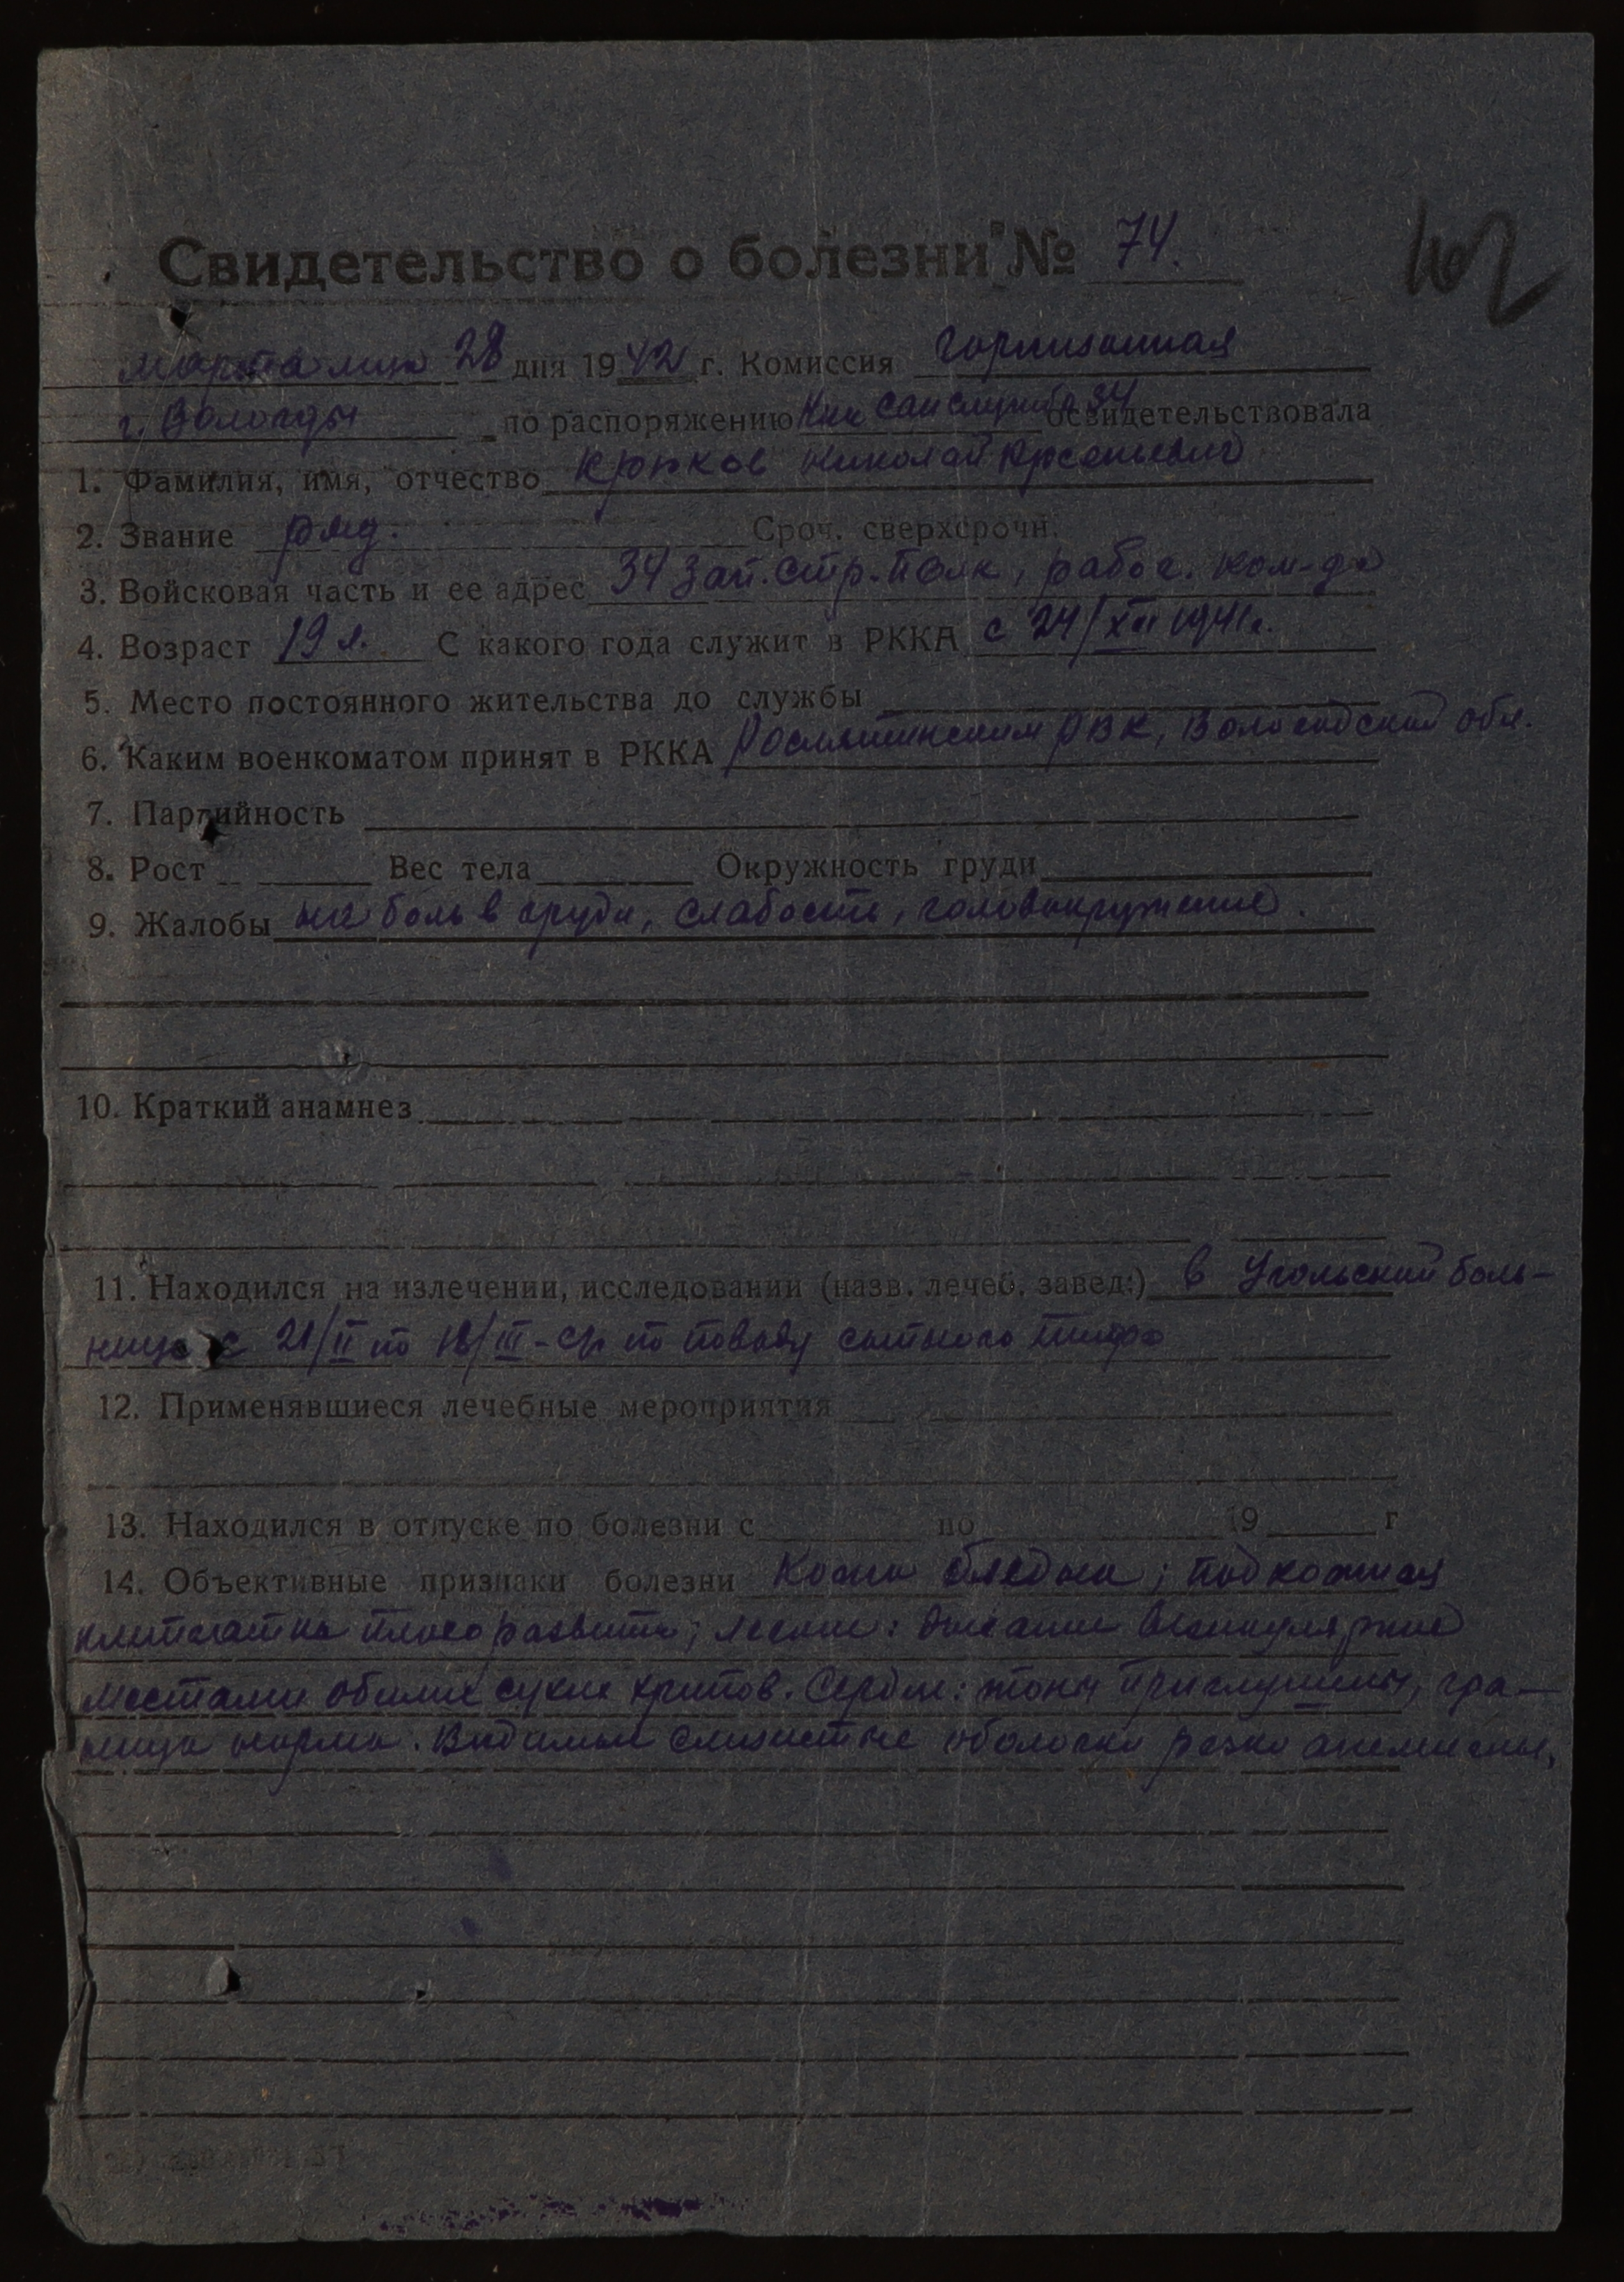 Свидетельство о болезни № 74.
402
марта м-ца 28 дня 1942 г. Комиссия гарнизонная
г. Вологды по распоряжению Нач сан службы 34 освидетельствовала
1. Фамилия, имя, отчество Крюков Николай Арсеньевич
2. Звание ряд. Сроч. сверхсрочн.
3. Войсковая часть и ее адрес 34 зап. стр. полк, рабоч. ком-да
4. Возраст 19 л. С какого года служит в РККА с 24/XII 1941г.
5. Место постоянного жительства до службы
6. Каким военкоматом принят в РККА РВК, Вологодской обл.
7. Партийность
8. Рост Вес тела Окружность груди
9. Жалобы на боль в груди, слабость, головокружение.
10. Краткий анамнез
11. Находился на излечении, исследовании (назв. лечеб. завед.) в Угольский боль-
нице с 21/II по 18/III-ср по поводу сыпного тифа
12. Применявшиеся лечебные мероприятия
13. Находился в отпуске по болезни с по 19 г
14. Объективные признаки болезни Кожа бледна; подкожная
клетчатка плохо развита; легкие: дыхание везикулярное
местами обилие сухих хрипов. Сердце: тоны приглушены, гра-
ница норма. Видимые слизистые оболочки резко анемичны,